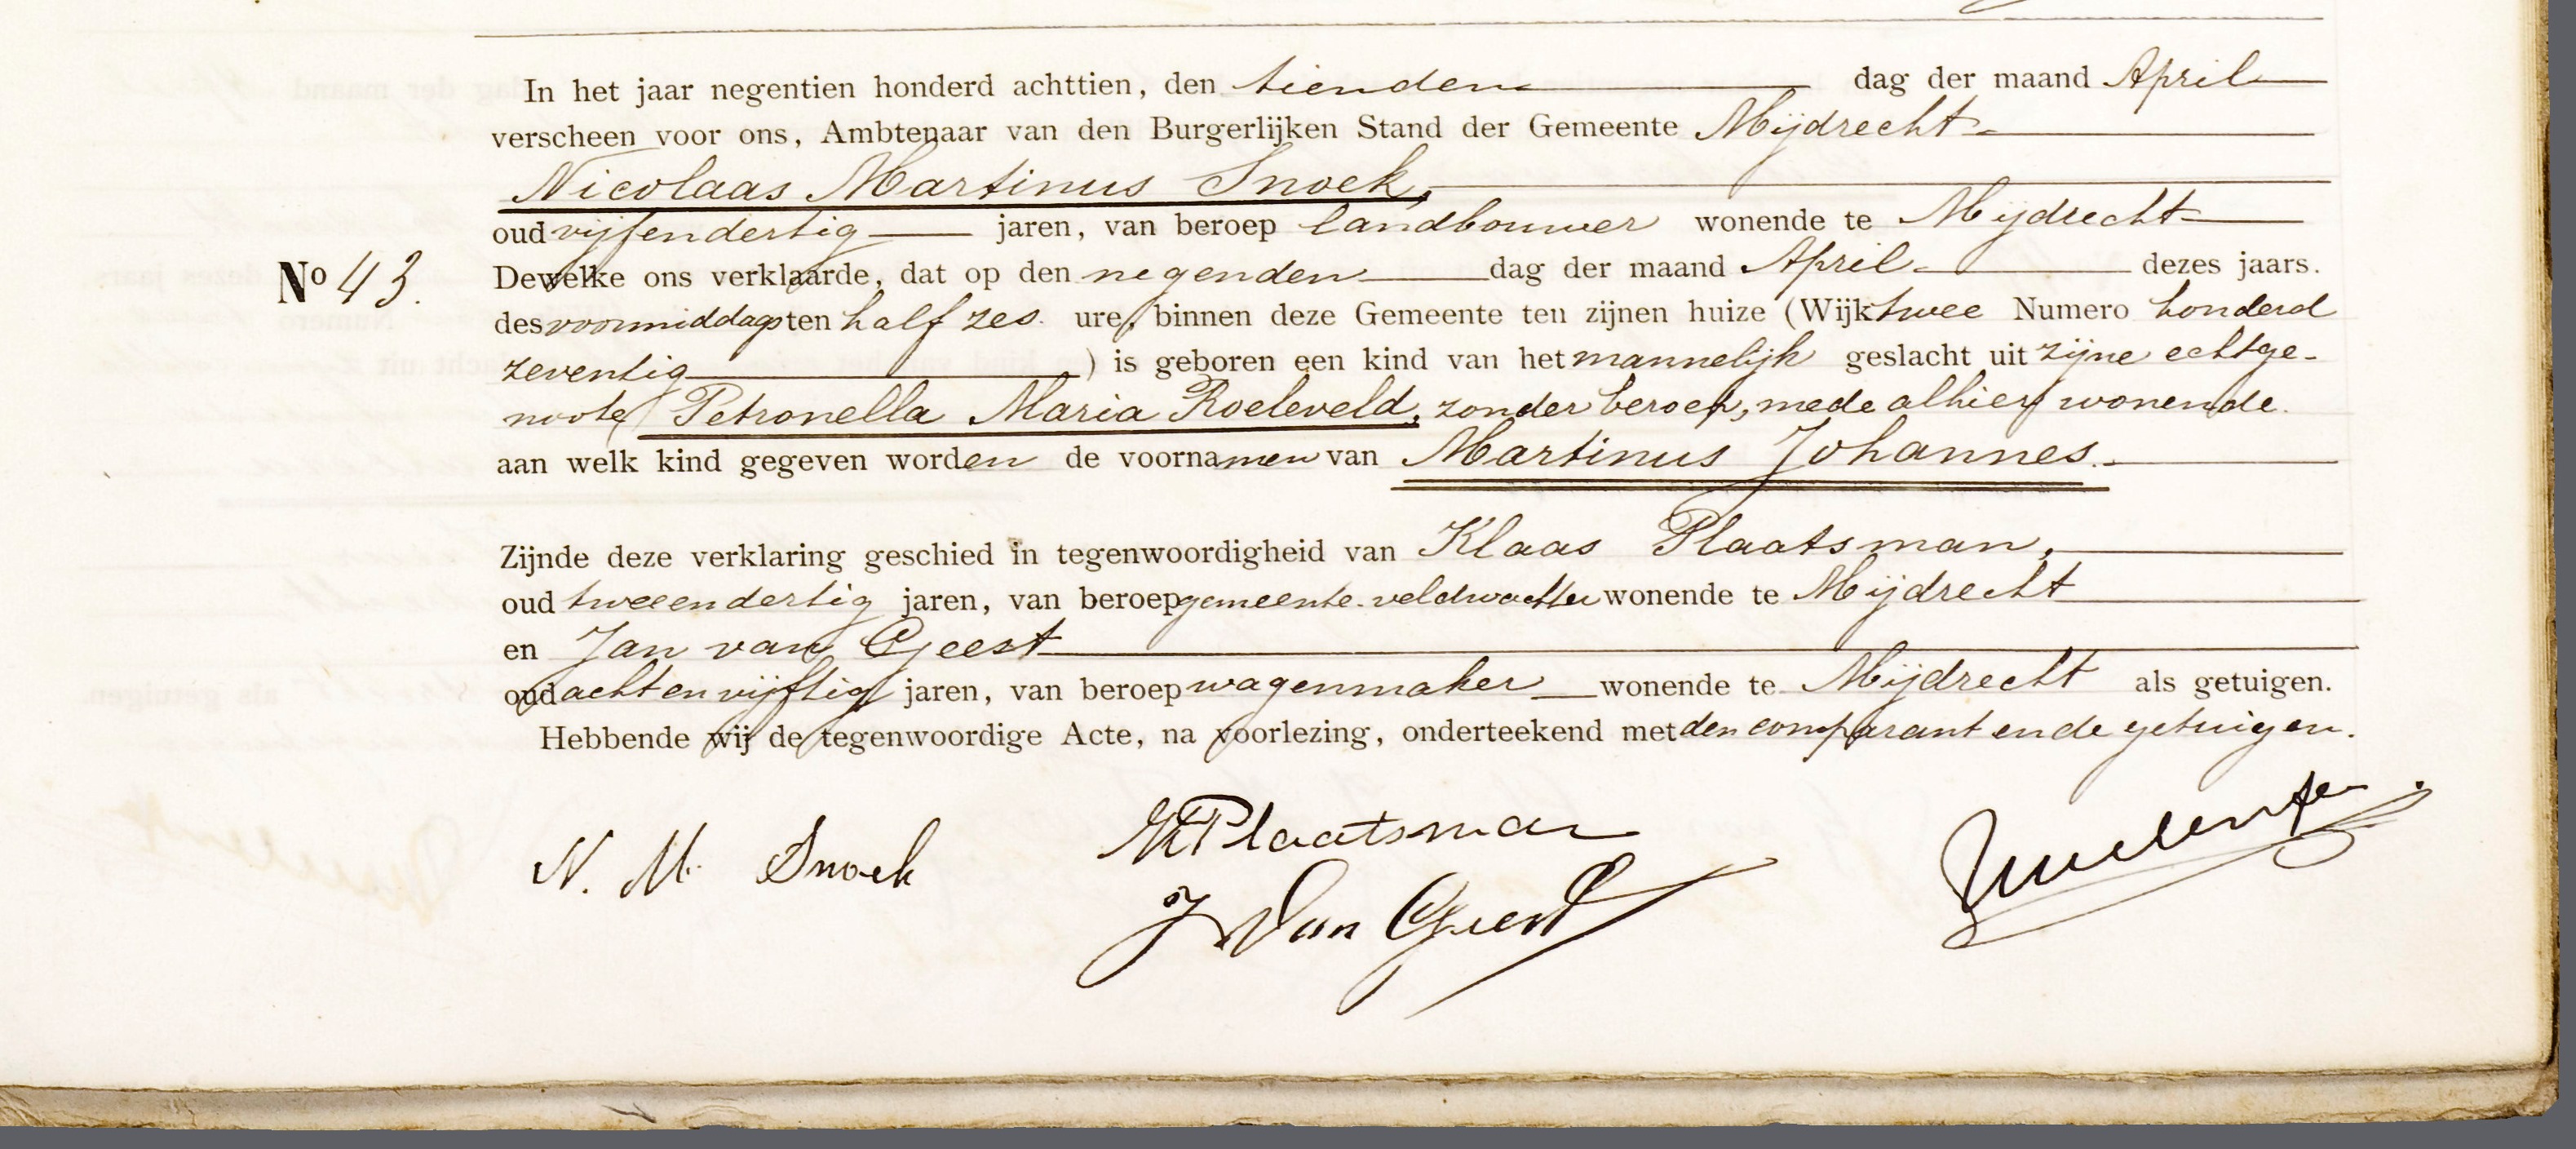 In het jaar negentien honderd achttien, den tienden dag der maand April
verscheen voor ons, Ambtenaar van den Burgerlijken Stand der Gemeente Mijdrecht
Nicolaas Martinus Snoek,
oud vijfendertig jaren, van beroep landbouwer wonende te Mijdrecht
No 43. Dewelke ons verklaarde, dat op den negenden dag der maand April dezes jaars.
des voormiddags ten half zes ure, binnen deze Gemeente ten zijnen huize (Wijk twee Numero honderd
zeventig ) is geboren een kind van het mannelijk geslacht uit zijne echtge-
noote Petronella Maria Roeleveld, zonder beroep, mede alhier wonende.
aan welk kind gegeven worden de voornamen van Martinus Johannes.
Zijnde deze verklaring geschied in tegenwoordigheid van Klaas Plaatsman,
oud tweeendertig jaren, van beroep gemeente-veldwachter wonende te Mijdrecht
en Jan van Geest
oud achtenvijftig jaren, van beroep wagenmaker wonende te Mijdrecht als getuigen.
Hebbende wij de tegenwoordige Acte, na voorlezing, onderteekend met den comparant en de getuigen.
N. M. Snoek
K Plaatsman
J Van Geest